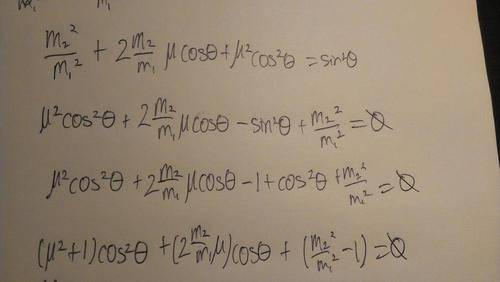 m₁
m₂²/m₁² + 2 m₂/m₁ μcosθ + μ²cos²θ = sin²θ
μ²cos²θ + 2 m₂/m₁ μcosθ - sin²θ + m₂²/m₁² = 0
μ²cos²θ + 2 m₂/m₁ μcosθ - 1 + cos²θ + m₂²/m₁² = 0
(μ²+1)cos²θ + (2 m₂/m₁ μ)cosθ + (m₂²/m₁² - 1) = 0